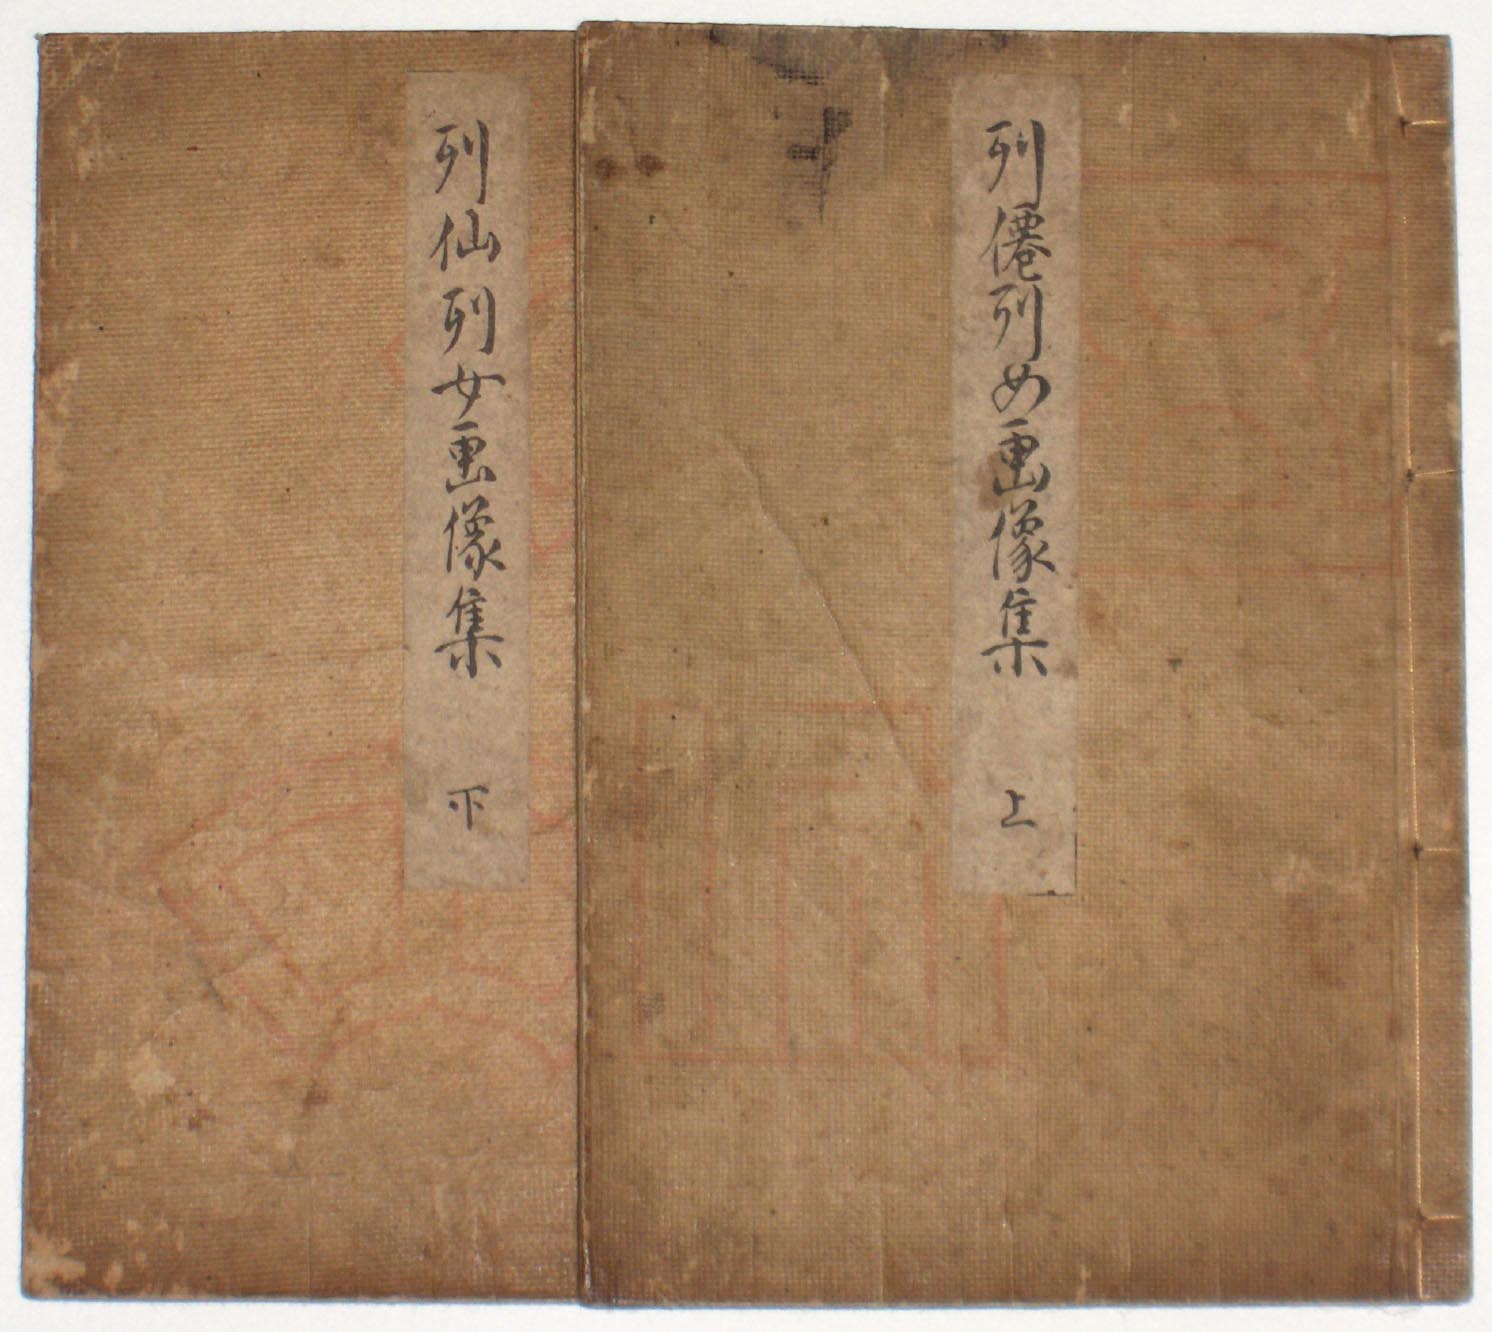 列僊列女画像集 上
列仙列女画像集 下